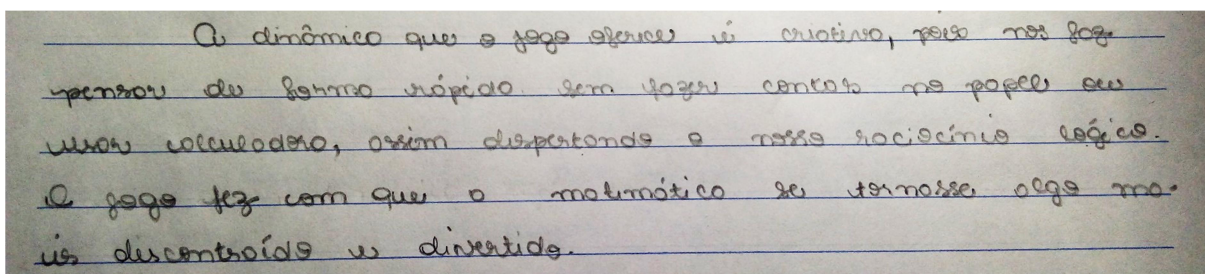 A dinâmica que o jogo oferece é criativa, pois nos faz
pensar de forma rápida sem fazer contas no papel ou
usar calculadora, assim despertando o nosso raciocínio lógico.
O jogo fez com que a matemática se tornasse algo ma-
is descontraído e divertido.